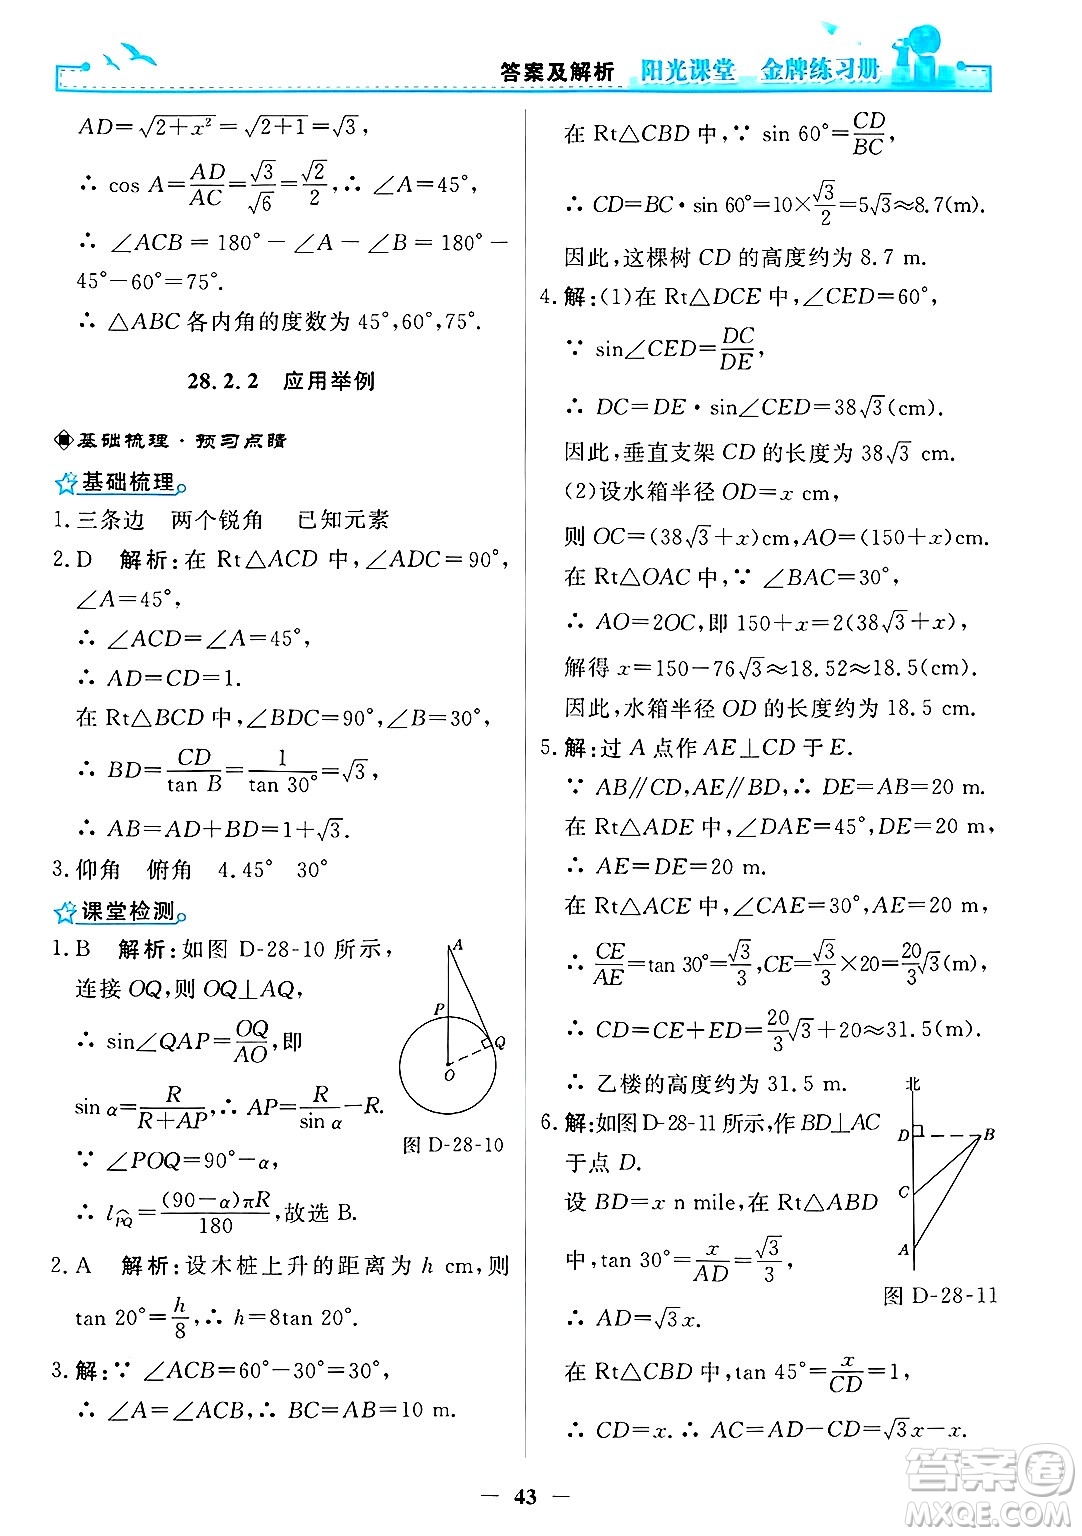 答案及解析 阳光课堂 金牌练习册
AD=√(2+x²)=√(2+1)=√3,
∴ cos A=AD/AC=√3/√6=√2/2,∴ ∠A=45°,
∴ ∠ACB=180°-∠A-∠B=180°-
45°-60°=75°.
∴ △ABC 各内角的度数为 45°,60°,75°.
28.2.2 应用举例
基础梳理·预习点睛
基础梳理
1.三条边 两个锐角 已知元素
2.D 解析:在 Rt△ACD 中,∠ADC=90°,
∠A=45°,
∴ ∠ACD=∠A=45°,
∴ AD=CD=1.
在 Rt△BCD 中,∠BDC=90°,∠B=30°,
∴ BD=CD/tan B=1/tan 30°=√3,
∴ AB=AD+BD=1+√3.
3.仰角 俯角 4.45° 30°
课堂检测
1.B 解析:如图 D-28-10 所示,
连接 OQ,则 OQ⊥AQ,
∴ sin∠QAP=OQ/AO,即
sin α=R/(R+AP),∴ AP=R/sin α-R.
∵ ∠POQ=90°-α,
∴ l⌒PQ=(90-α)πR/180,故选 B.
A
P
Q
O
图 D-28-10
2.A 解析:设木桩上升的距离为 h cm,则
tan 20°=h/8,∴ h=8tan 20°.
3.解:∵ ∠ACB=60°-30°=30°,
∴ ∠A=∠ACB,∴ BC=AB=10 m.
在 Rt△CBD 中,∵ sin 60°=CD/BC,
∴ CD=BC·sin 60°=10×√3/2=5√3≈8.7(m).
因此,这棵树 CD 的高度约为 8.7 m.
4.解:(1)在 Rt△DCE 中,∠CED=60°,
∵ sin∠CED=DC/DE,
∴ DC=DE·sin∠CED=38√3(cm).
因此,垂直支架 CD 的长度为 38√3 cm.
(2)设水箱半径 OD=x cm,
则 OC=(38√3+x)cm,AO=(150+x)cm.
在 Rt△OAC 中,∵ ∠BAC=30°,
∴ AO=2OC,即 150+x=2(38√3+x),
解得 x=150-76√3≈18.52≈18.5(cm).
因此,水箱半径 OD 的长度约为 18.5 cm.
5.解:过 A 点作 AE⊥CD 于 E.
∵ AB∥CD,AE∥BD,∴ DE=AB=20 m.
在 Rt△ADE 中,∠DAE=45°,DE=20 m,
∴ AE=DE=20 m.
在 Rt△ACE 中,∠CAE=30°,AE=20 m,
∴ CE/AE=tan 30°=√3/3,CE=√3/3×20=20/3√3(m),
∴ CD=CE+ED=20/3√3+20≈31.5(m).
∴ 乙楼的高度约为 31.5 m.
6.解:如图 D-28-11 所示,作 BD⊥AC
于点 D.
设 BD=x n mile,在 Rt△ABD
中,tan 30°=x/AD=√3/3,
∴ AD=√3x.
在 Rt△CBD 中,tan 45°=x/CD=1,
∴ CD=x.∴ AC=AD-CD=√3x-x.
北
D
B
C
A
图 D-28-11
43
答案圈
MXQE.COM